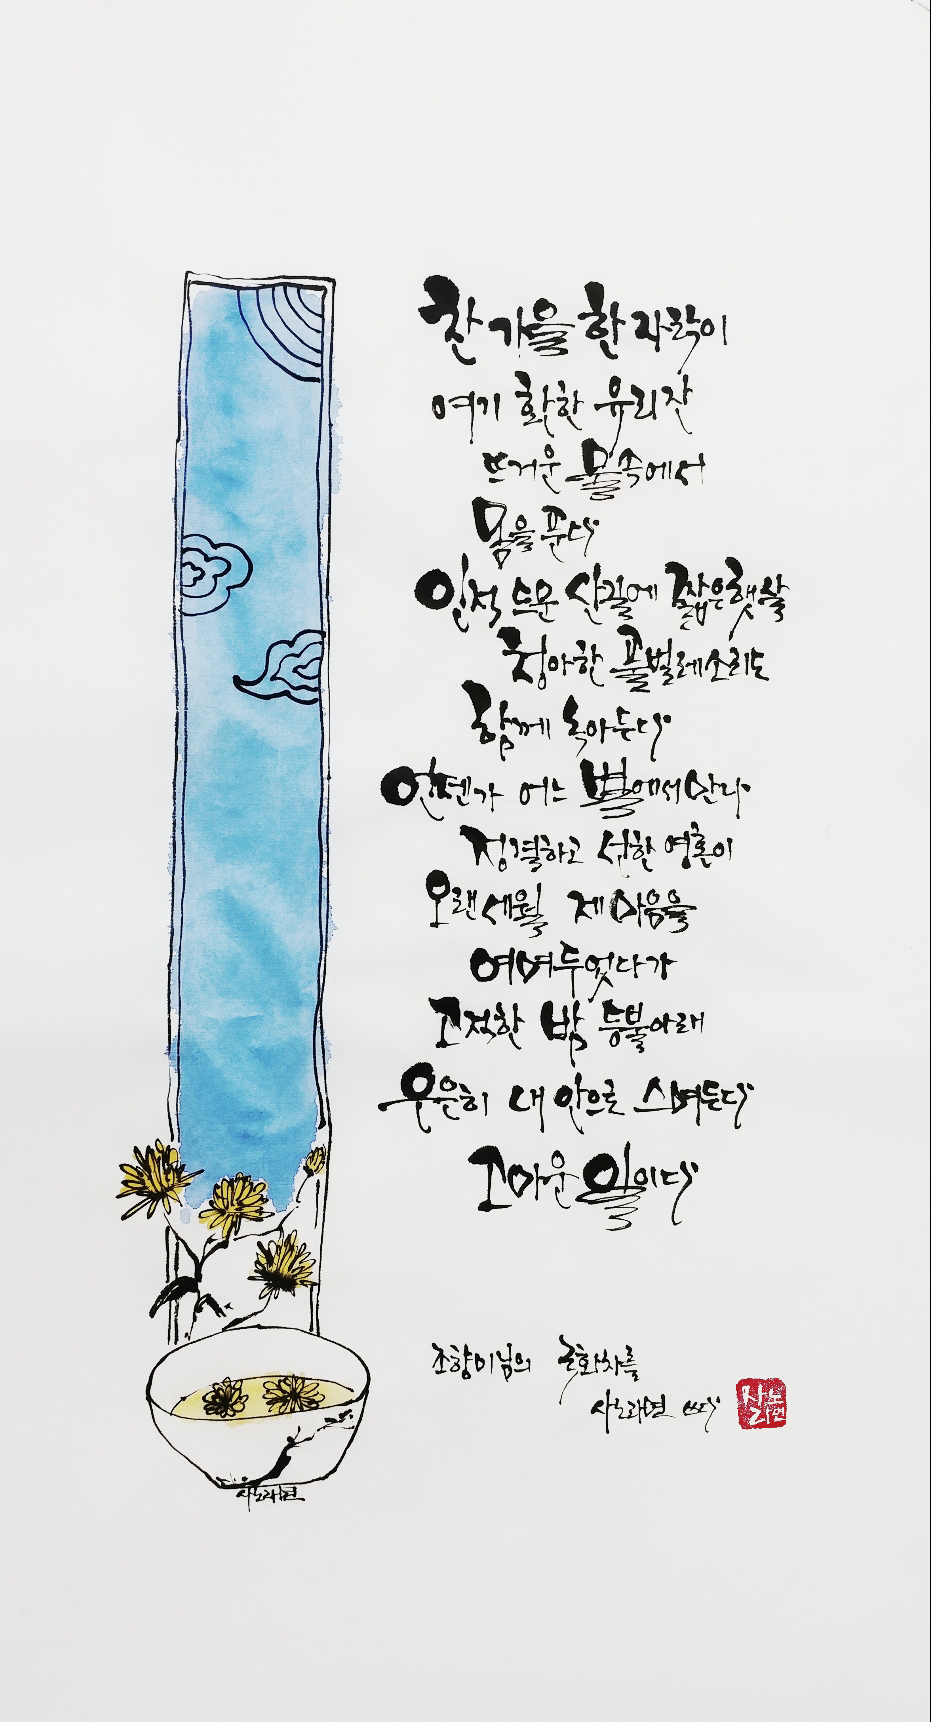 찬 가을 한 자락이
여기 환한 유리잔
뜨거운 물속에서
몸을 푼다
인적 드문 산길에 짧은 햇살
청아한 풀벌레소리도
함께 녹아든다
언젠가 어느 별에서 만나
정결하고 선한 영혼이
오랜 세월 제 마음을
여며두었다가
고적한 밤 등불 아래
은은히 내 안으로 스며든다
고마운 일이다
조향미님의 국화차를
사노라면 쓰다
사노라면
사노라면